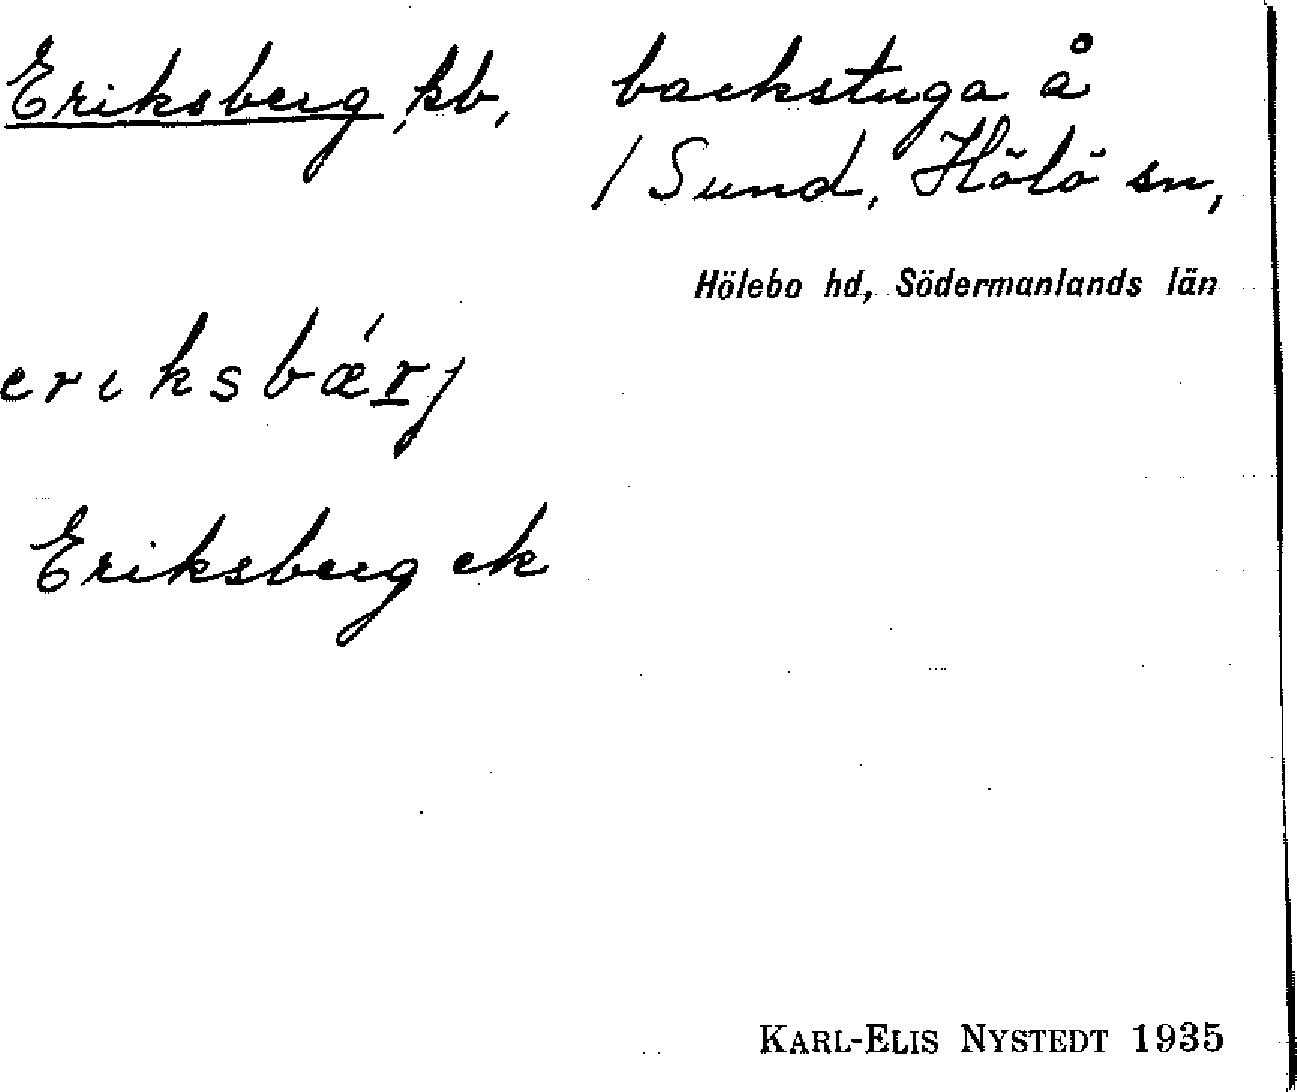 Eriksberg, kb, backstuga å
/ Sund, Hölö sn,
Hölebo hd, Södermanlands län
eriksbǽrj
Eriksberg ek
KARL-ELIS NYSTEDT 1935